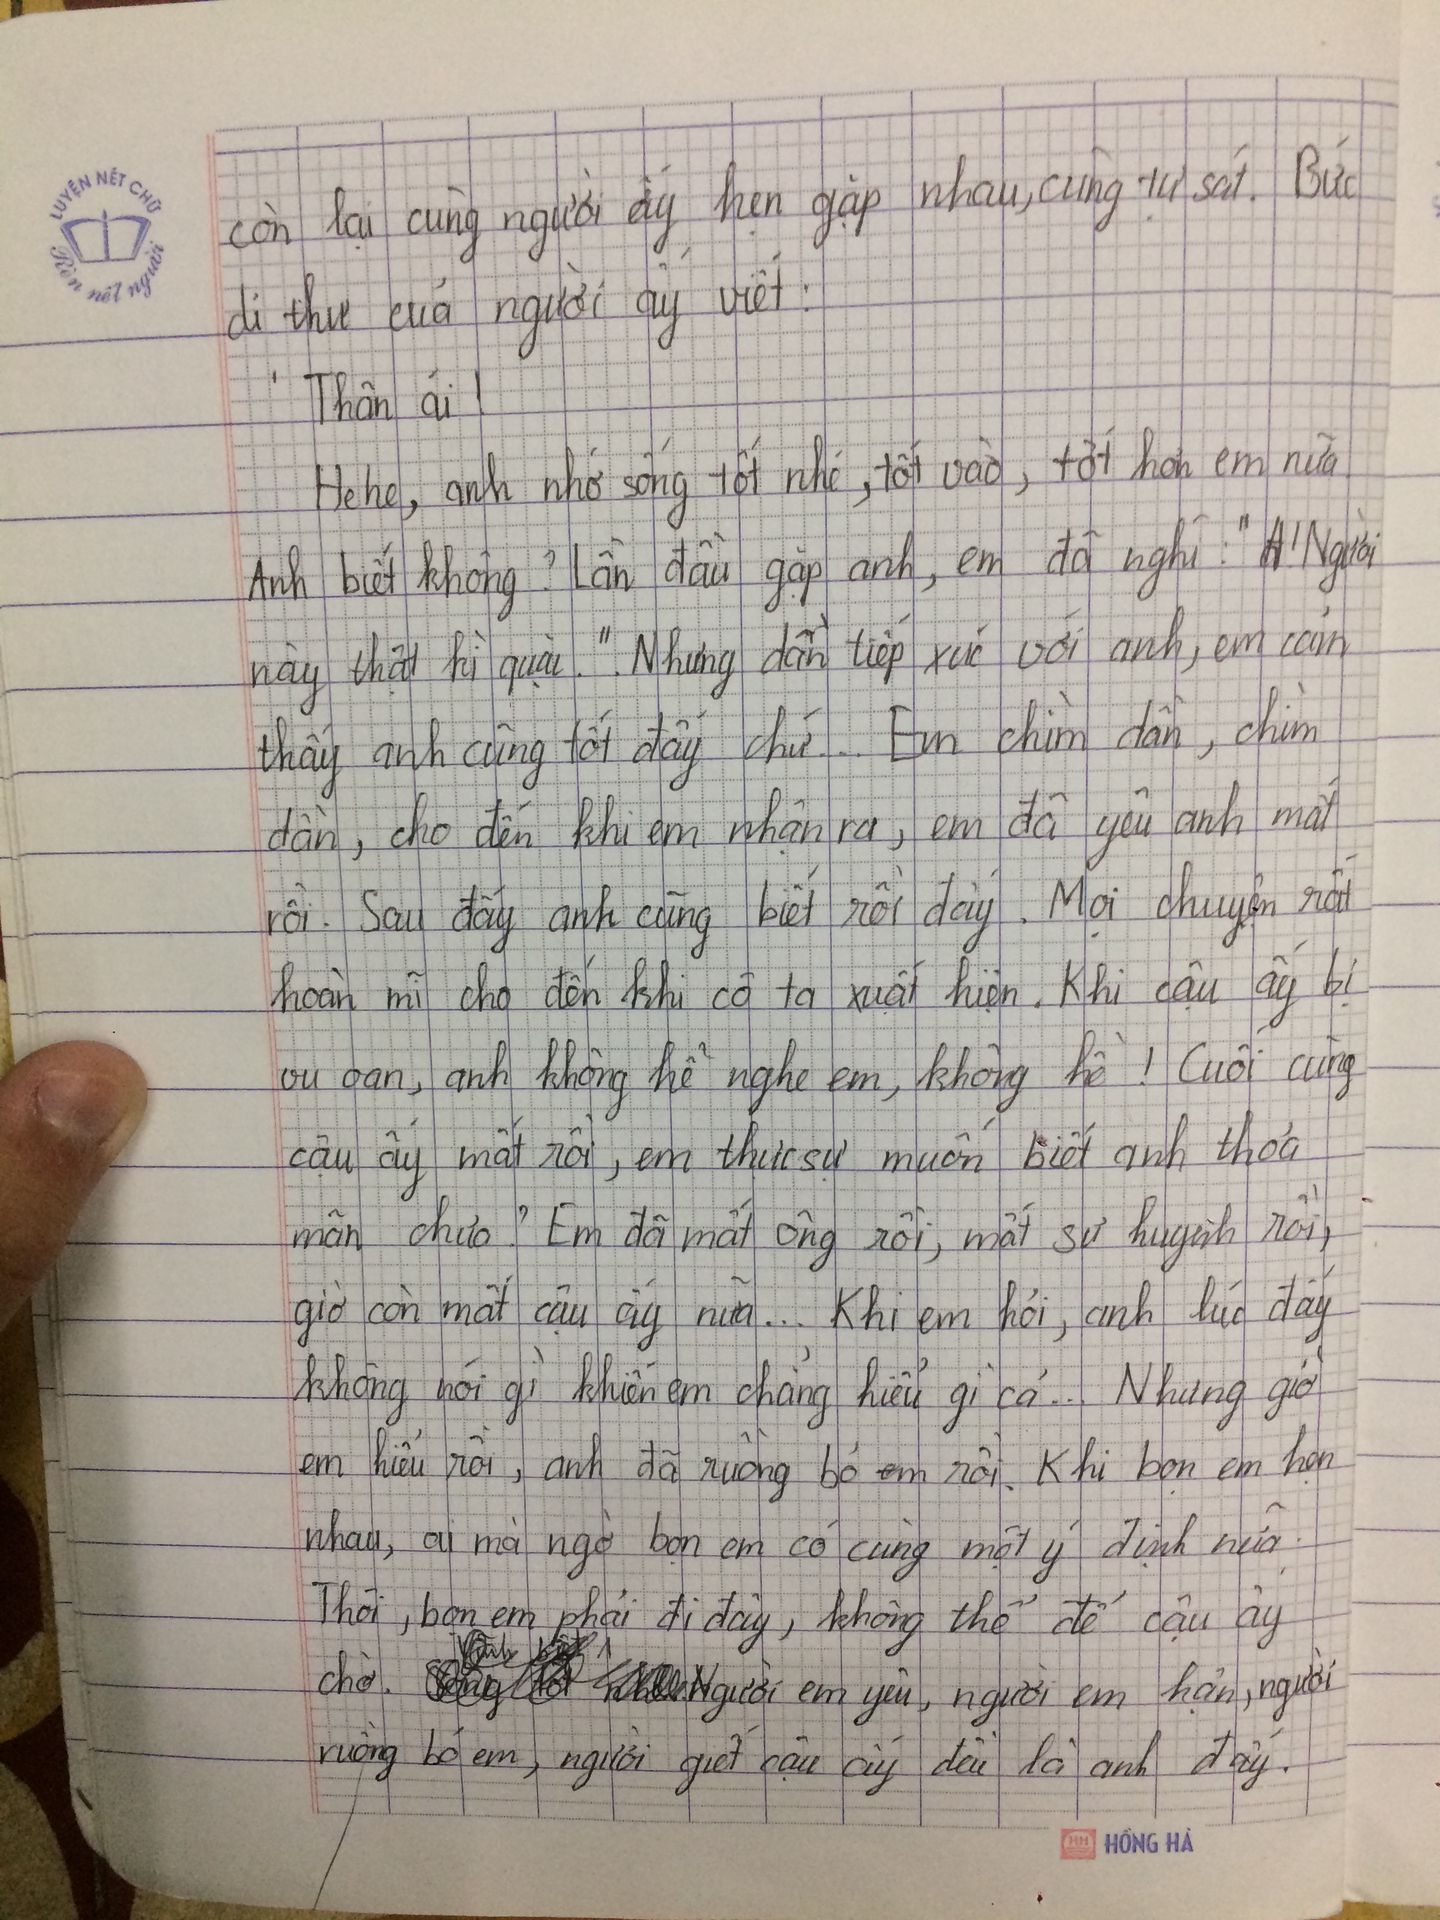 LUYỆN NÉT CHỮ
Rèn nết người
còn lại cùng người ấy hẹn gặp nhau, cùng tự sát. Bức
di thư của người ấy viết:
' Thân ái!
Hehe, anh nhớ sống tốt nhé, tốt vào, tốt hơn em nữa
Anh biết không? Lần đầu gặp anh, em đã nghĩ: "A! Người
này thật kì quặc.". Nhưng dần tiếp xúc với anh, em cảm
thấy anh cũng tốt đấy chứ... Em chìm dần, chìm
dần, cho đến khi em nhận ra, em đã yêu anh mất
rồi. Sau đấy anh cũng biết rồi đấy. Mọi chuyện rất
hoàn mĩ cho đến khi cô ta xuất hiện. Khi cậu ấy bị
vu oan, anh không hề nghe em, không hề! Cuối cùng
cậu ấy mất rồi, em thực sự muốn biết anh thỏa
mãn chưa? Em đã mất ông rồi, mất sư huynh rồi,
giờ còn mất cậu ấy nữa... Khi em hỏi, anh lúc đấy
không nói gì khiến em chẳng hiểu gì cả... Nhưng giờ
em hiểu rồi, anh đã ruồng bỏ em rồi. Khi bọn em hẹn
nhau, ai mà ngờ bọn em có cùng một ý định nữa.
Thôi, bọn em phải đi đây, không thể để cậu ấy
chờ. Người em yêu, người em hận, người
ruồng bỏ em, người giết cậu ấy đều là anh đấy.
HỒNG HÀ